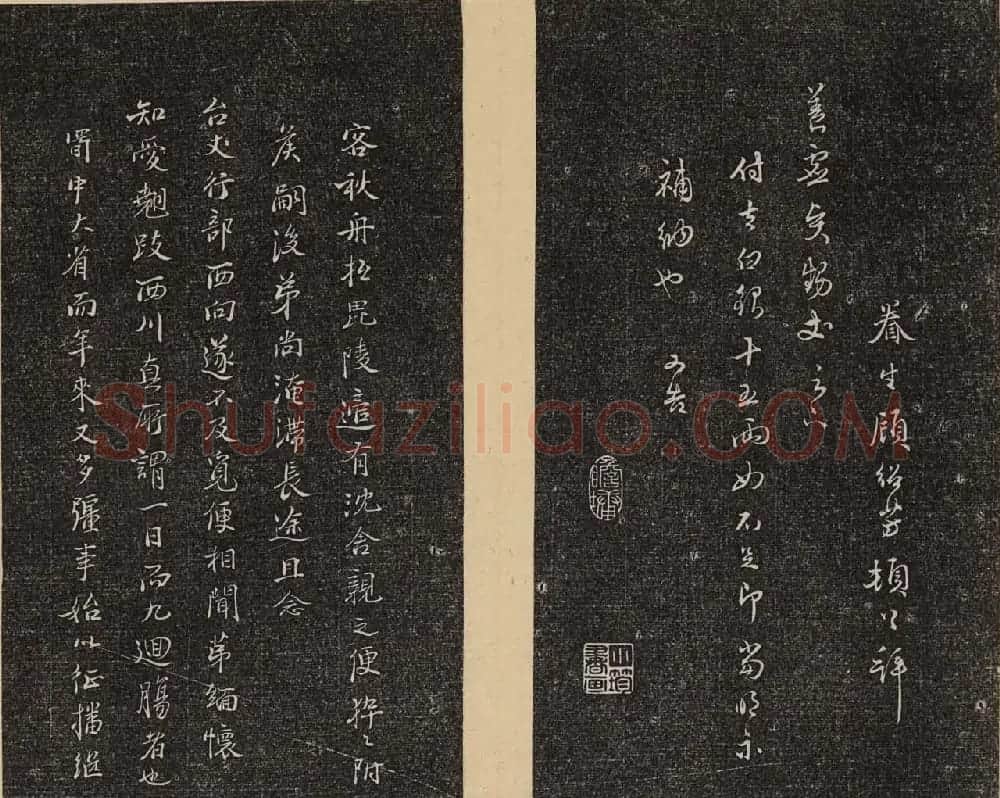 眷生顧紹芳頓首拜
善
付去白銀十五兩如不足即當
補納也 又告
客秋舟於毘陵這有沈舍親之便猝々附
矦嗣後弟尚淹滯長途且念
台丈行部西向遂不及覓便相聞弟緬懷
知愛翹跂西川真所謂一日而九迴腸者也
蜀中大省而年來又多疆事始以征播繼
Shufaziliao.COM